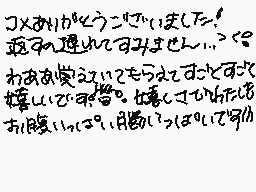 コメありがとうございました!
返すの遅れてすみません…
わああ覚えていてもらえてすごくすごく
嬉しいです。嬉しさでわたしも
お腹いっぱい胸いっぱいです